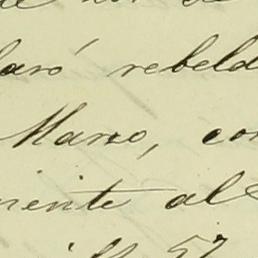 laró rebeld
Marzo, con
niente al
57